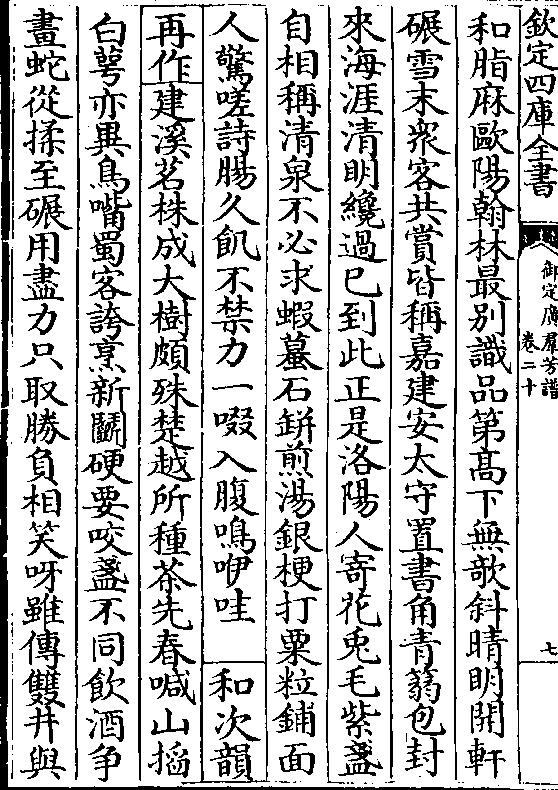 欽定四庫全書
御定廣羣芳譜
卷二十
七
和脂麻歐陽翰林最别識品第髙下無欹斜晴明開軒
碾雪末衆客共賞皆稱嘉建安太守置書角青蒻包封
來海涯清明纔過已到此正是洛陽人寄花兎毛紫盞
自相稱清泉不必求蝦蟇石鉼煎湯銀梗打粟粒鋪面
人驚嗟詩腸久飢不禁力一啜入腹鳴咿哇 和次韻
再作建溪茗株成大樹頗殊楚越所種茶先春喊山搯
白萼亦異鳥嘴蜀客誇烹新鬬硬要咬盞不同飲酒争
畫蛇從揉至碾用盡力只取勝負相笑呀雖傳雙井與